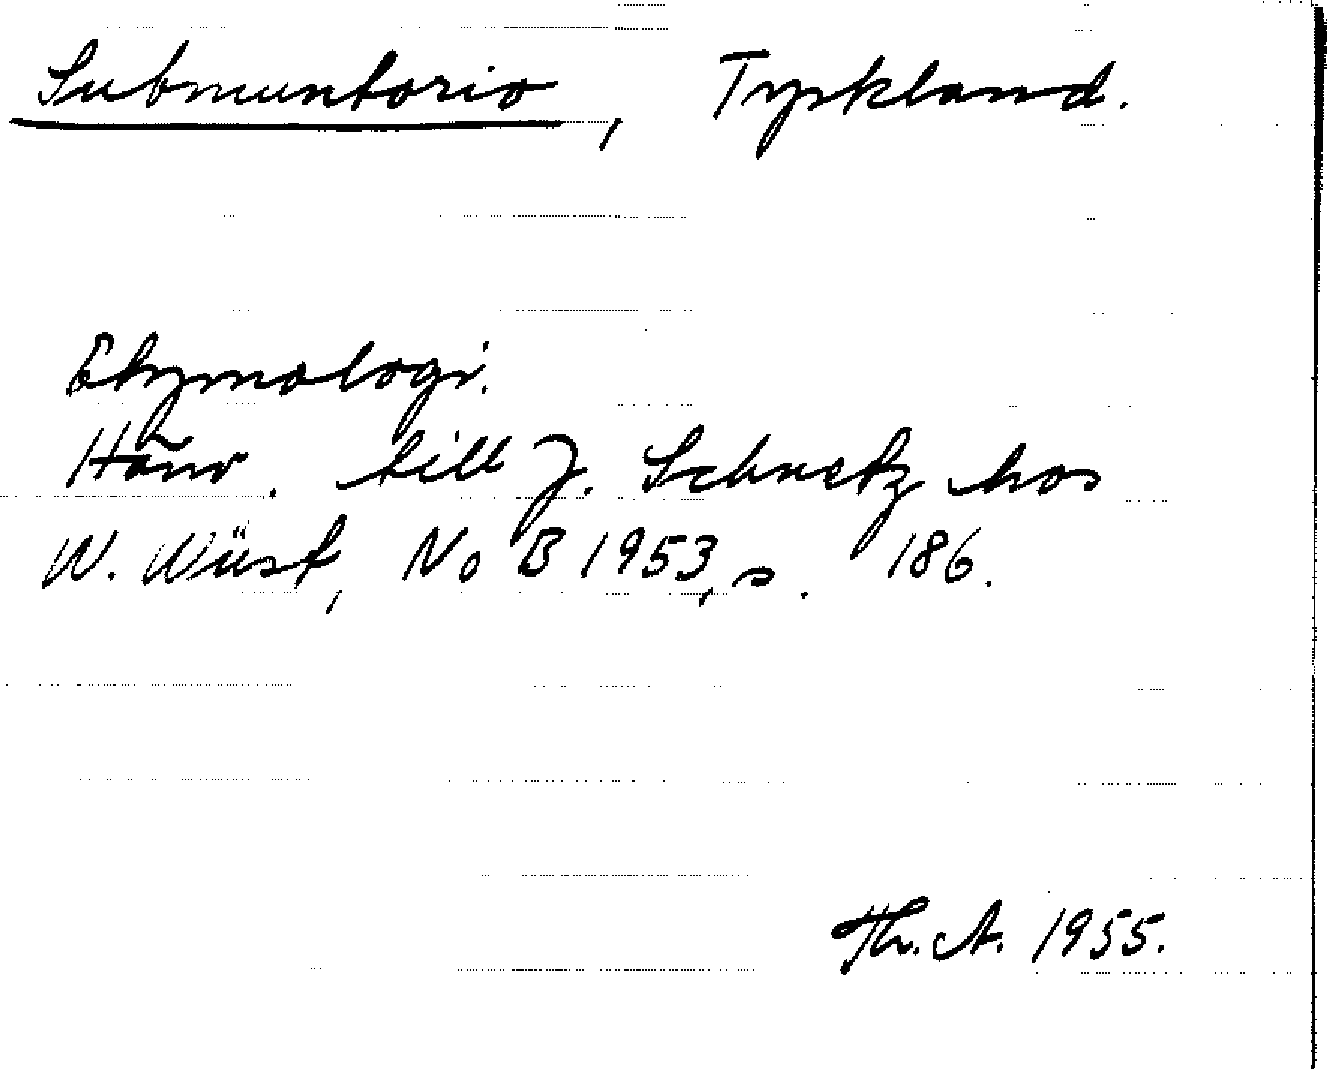 Submuntorio, Tyskland.
Etymologi.
Hänv. till J. Schnetz hos
W. Wüst, NoB 1953, s. 186.
Th. A. 1955.